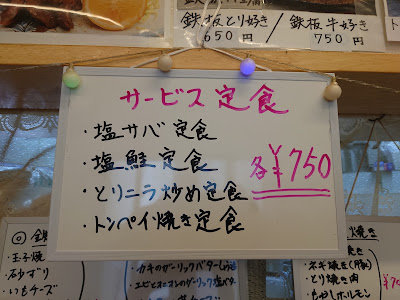 鉄板とり好き
650円
鉄板牛好き
750円
サービス定食
・塩サバ定食
・塩鮭定食
・とりニラ炒め定食
・トンペイ焼き定食
各¥750
・玉子焼
・砂ずり
・いもチーズ
・カキのガーリックバターしょうゆ
・エビとオニオンのガーリック塩バター
焼き
・ネギ焼き(豚)
・とり焼き肉
・もやしホルモン